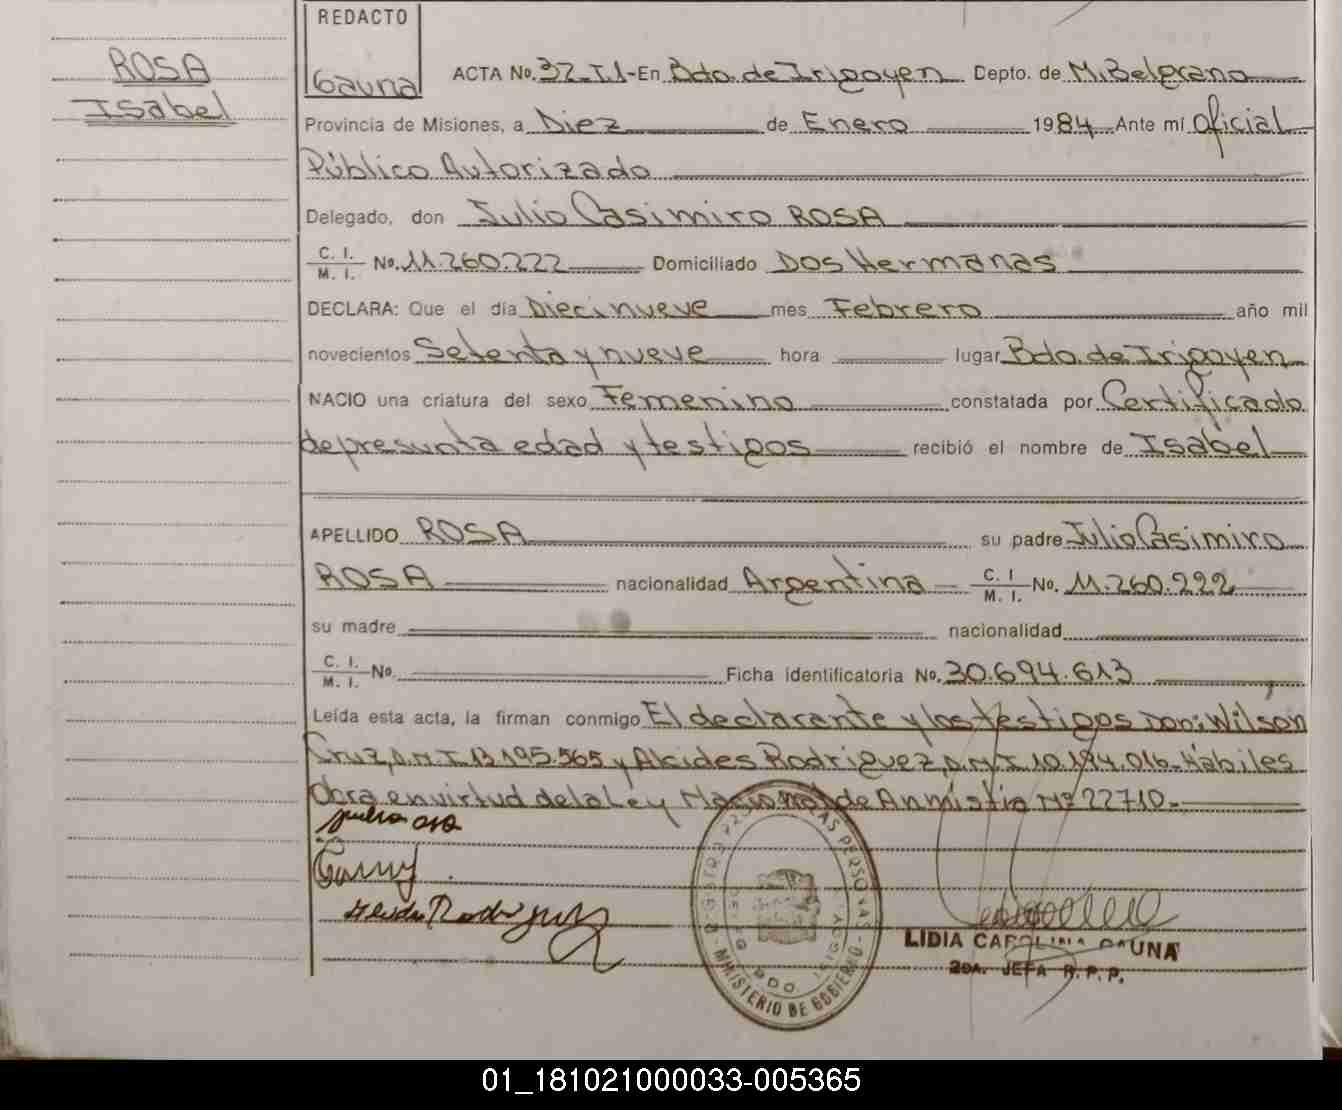 REDACTO
Gauna
ROSA
Isabel
ACTA No. 32-T.I-En Bdo. de Irigoyen Depto. de M. Belgrano
Provincia de Misiones, a Diez de Enero 1984 Ante mí Oficial
Público Autorizado
Delegado, don Julio Casimiro ROSA
C. I. M. I. No. 11.260.222 Domiciliado Dos Hermanas
DECLARA: Que el día Diecinueve mes Febrero año mil
novecientos Setenta y nueve hora lugar Bdo. de Irigoyen
NACIO una criatura del sexo Femenino constatada por Certificado
de presunta edad y testigos recibió el nombre de Isabel
APELLIDO ROSA su padre Julio Casimiro
ROSA nacionalidad Argentina C. I M. I. No. 11.260.222
su madre nacionalidad
C. I. M. I. No. Ficha identificatoria No. 30.694.613
Leída esta acta, la firman conmigo El declarante y los testigos Don: Wilson
Cruz, D.M.I. 13.195.565 y Alcides Rodriguez, D.M.I. 10.194.016- Hábiles
Obra en virtud de la Ley Nacional de Anmistia Nº 22710-
MINISTERIO DE GOBIERNO
LIDIA CAROLINA GAUNA
2DA. JEFA R. P. P.
01_181021000033-005365